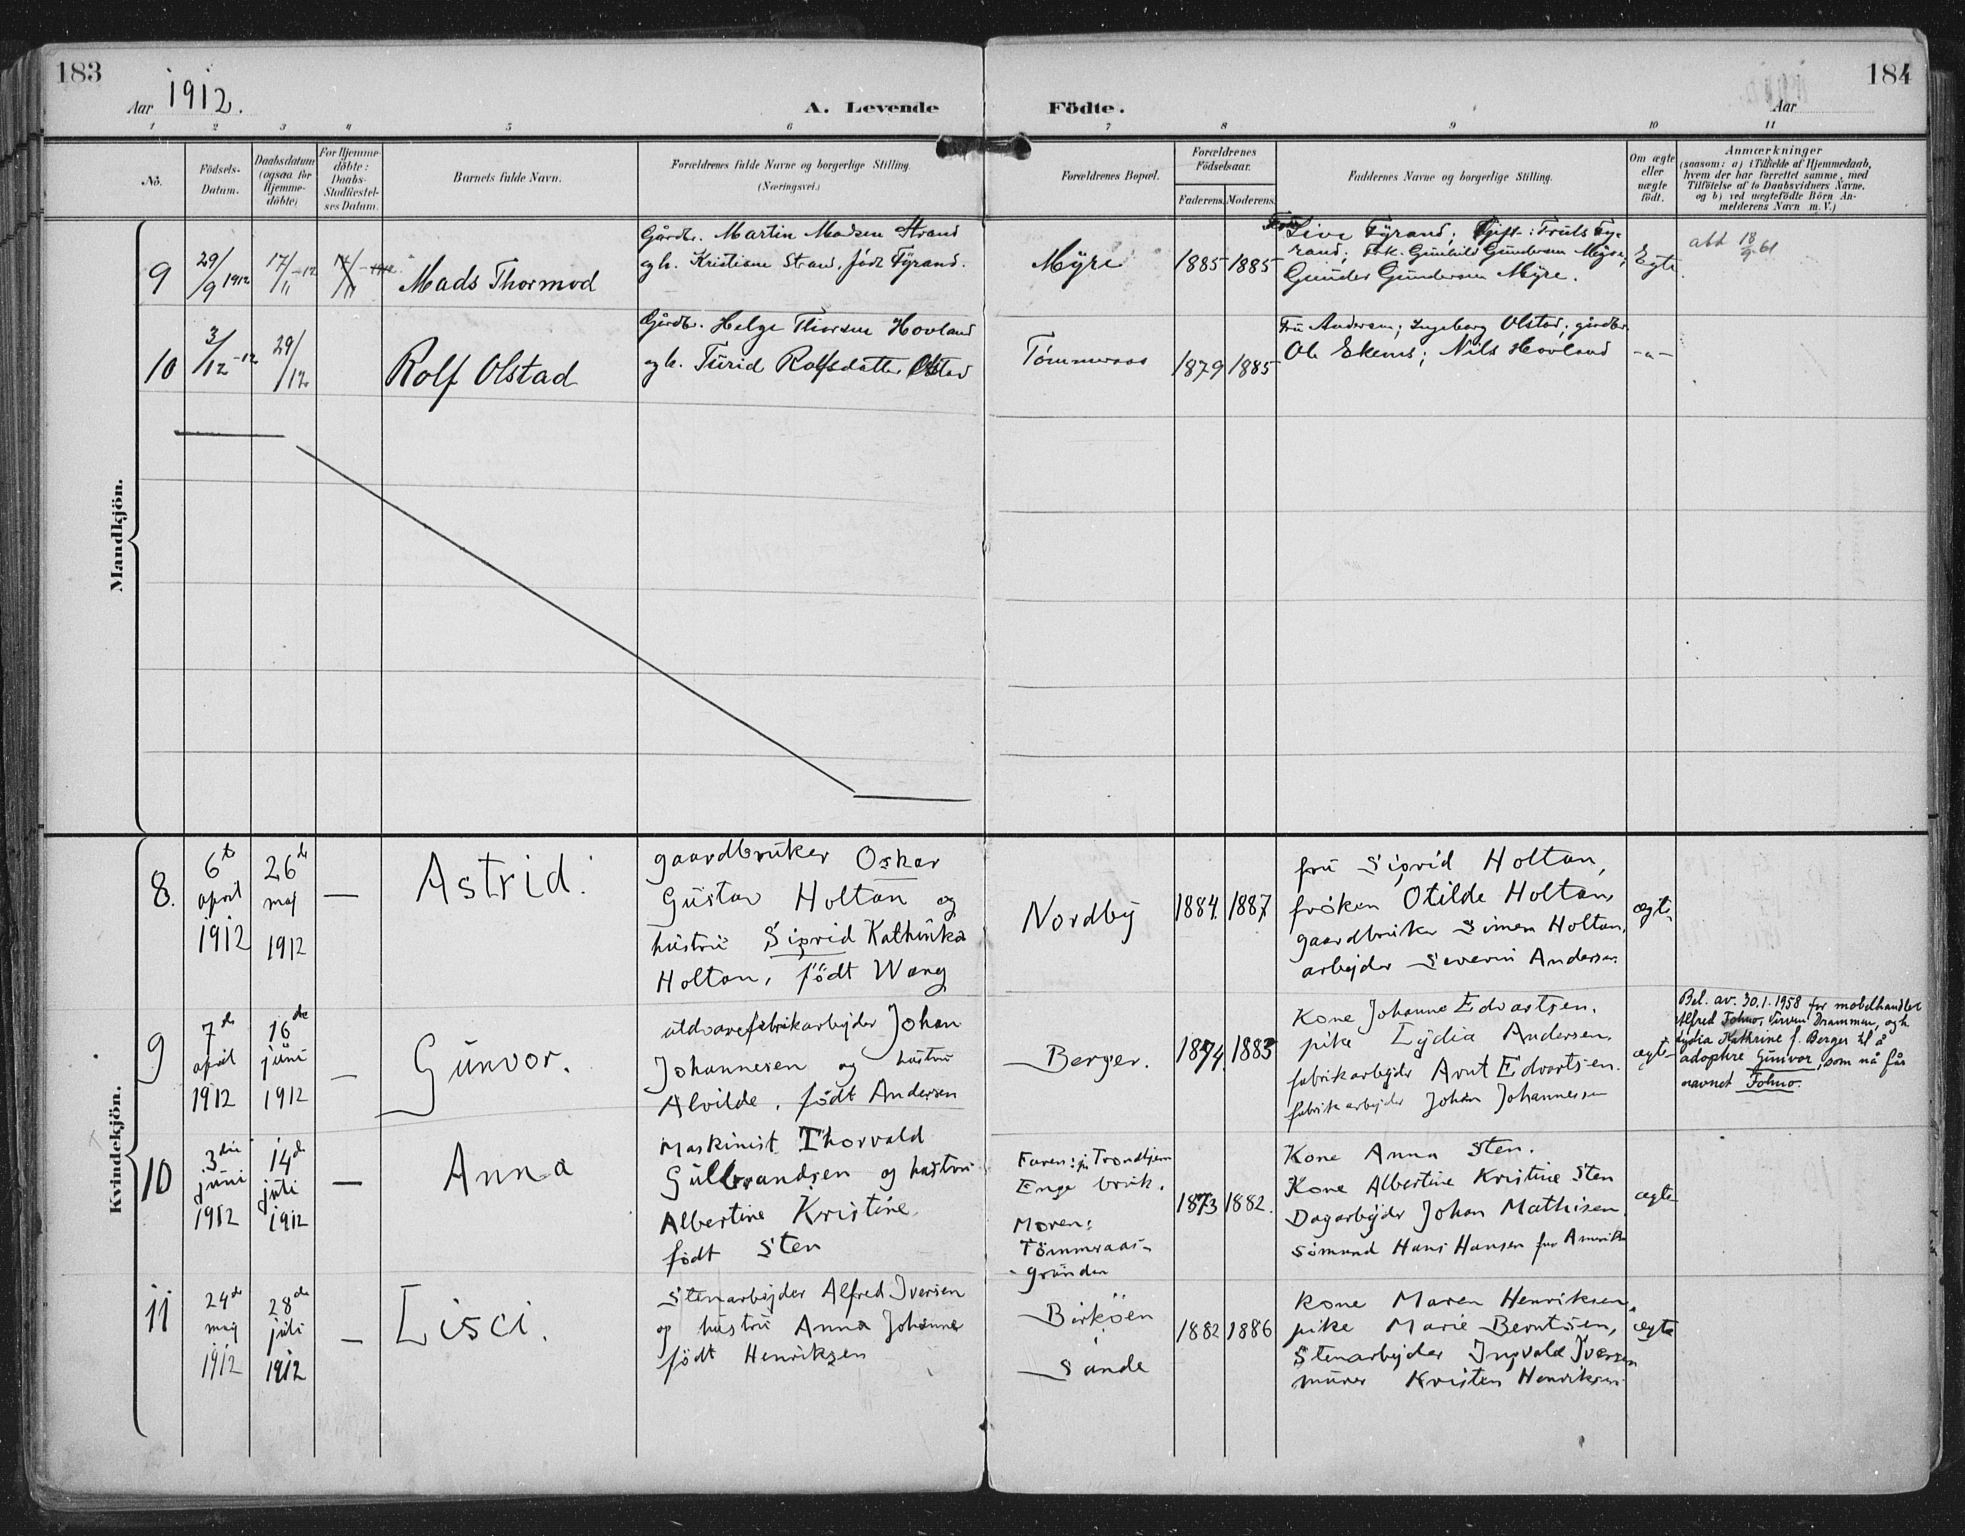 183
Aar 1912.
A. Levende
Födte.
Aar
184
1 2 3 4 5 6 7 8 9 10 11
No.
Födsels-
Datum.
Daabsdatum
(ogsaa for
Hjemme-
döbte)
For Hjemme-
döbte:
Daabs-
Stadfæstel-
ses Datum.
Barnets fulde Navn.
Forældrenes fulde Navne og borgerlige Stilling.
(Næringsvei.)
Forældrenes Bopæl.
Forældrenes
Födselsaar.
Faderens. Moderens.
Faddernes Navne og borgerlige Stilling.
Om ægte
eller
uægte
födt.
Anmærkninger
(saasom: a) i Tilfælde af Hjemmedaab,
hvem der har forrettet samme, med
Tilföielse af to Daabsvidners Navne.
og b) ved uægtefödte Börn An-
melderens Navn m. V.)
Mandkjön.
9
29/9 1912
17/11 -12
Mads Thormod
Gårdbr. Martin Madsen Strand
og h. Kristiane Strand, født Fyrand.
Myre
1885 1885
Live Fyrand; Gift: Truls Fy-
rand; Frk. Gunhild Gundersen Myre;
Gunder Gundersen Myre.
Egte
att 18/9 61
10
3/12 -12
29/12
Rolf Olstad
Gårdbr. Helge Thorsen Hovland
og h. Turid Rolfsdatter Olstad
Tømmeraas
1879 1885
Fru Andersen; Ingeborg Olstad; gårdbr.
Ole Ekenes; Nils Hovland
-"-
Kvindekjön.
8.
6te
april
1912
26de
maj
1912
—
Astrid.
gaardbruker Oskar
Gustav Holtan og
hustru Sigrid Kathinka
Holtan, født Wang
Nordby
1884. 1887
fru Sigrid Holtan,
frøken Otilde Holtan,
gaardbruker Simen Holtan,
arbejder Severin Andersen.
ægte
9
7de
april
1912
16de
juni
1912
—
Gunvor.
uldvarefabrikarbejder Johan
Johannesen og hustru
Alvilde, født Andersen
Berger.
1874. 1883
Kone Johanne Edvartsen.
pike Lydia Andersen.
fabrikarbejder Arnt Edvartsen.
fabrikarbejder Johan Johannessen
ægte
Bel. av. 30.1.1958 for møbelhandler
Alfred Fohno, Tirven, Drammen, og h.
Lydia Kathrine f. Berger til å
adoptere Gunvor, som nå får
navnet Fohno.
10
3die
juni
1912
14de
juli
1912
—
Anna
Maskinist Thorvald
Gulbrandsen og hustru
Albertine Kristine
født Sten
Faren: pr Trondhjem
Enge bruk.
Moren:
Tömmeraas-
grunden
1873 1882.
Kone Anna Sten.
Kone Albertine Kristine Sten
Dagarbejder Johan Mathisen.
Sømand Hans Hansen fra Amerika
ægte
11
24de
maj
1912
28de
juli
1912
—
Lisci.
Stenarbejder Alfred Iversen
og hustru Anna Johanne
født Henriksen
Birkøen
i
Sande
1882 1886
Kone Maren Henriksen,
pike Marie Berntsen,
Stenarbejder Ingvald Iversen
murer Kristen Henriksen
ægte